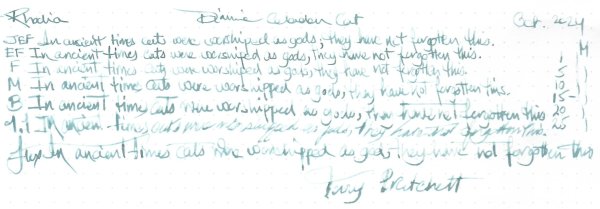 Rhodia Diamine Celadon Cat Oct. 2024
M
JEF In ancient times cats were worshipped as gods; they have not forgotten this.
EF In ancient times cats were worshipped as gods; they have not forgotten this. 1 )
F In ancient times cats were worshipped as gods; they have not forgotten this. 5 )
M In ancient times cats were worshipped as gods; they have not forgotten this. 10 )
B In ancient times cats were worshipped as gods; they have not forgotten this 15 )
1.1 In ancient times cats were worshipped as gods; they have not forgotten this. 20 )
In ancient times cats were worshipped as gods they have not forgotten this
Terry Pratchett